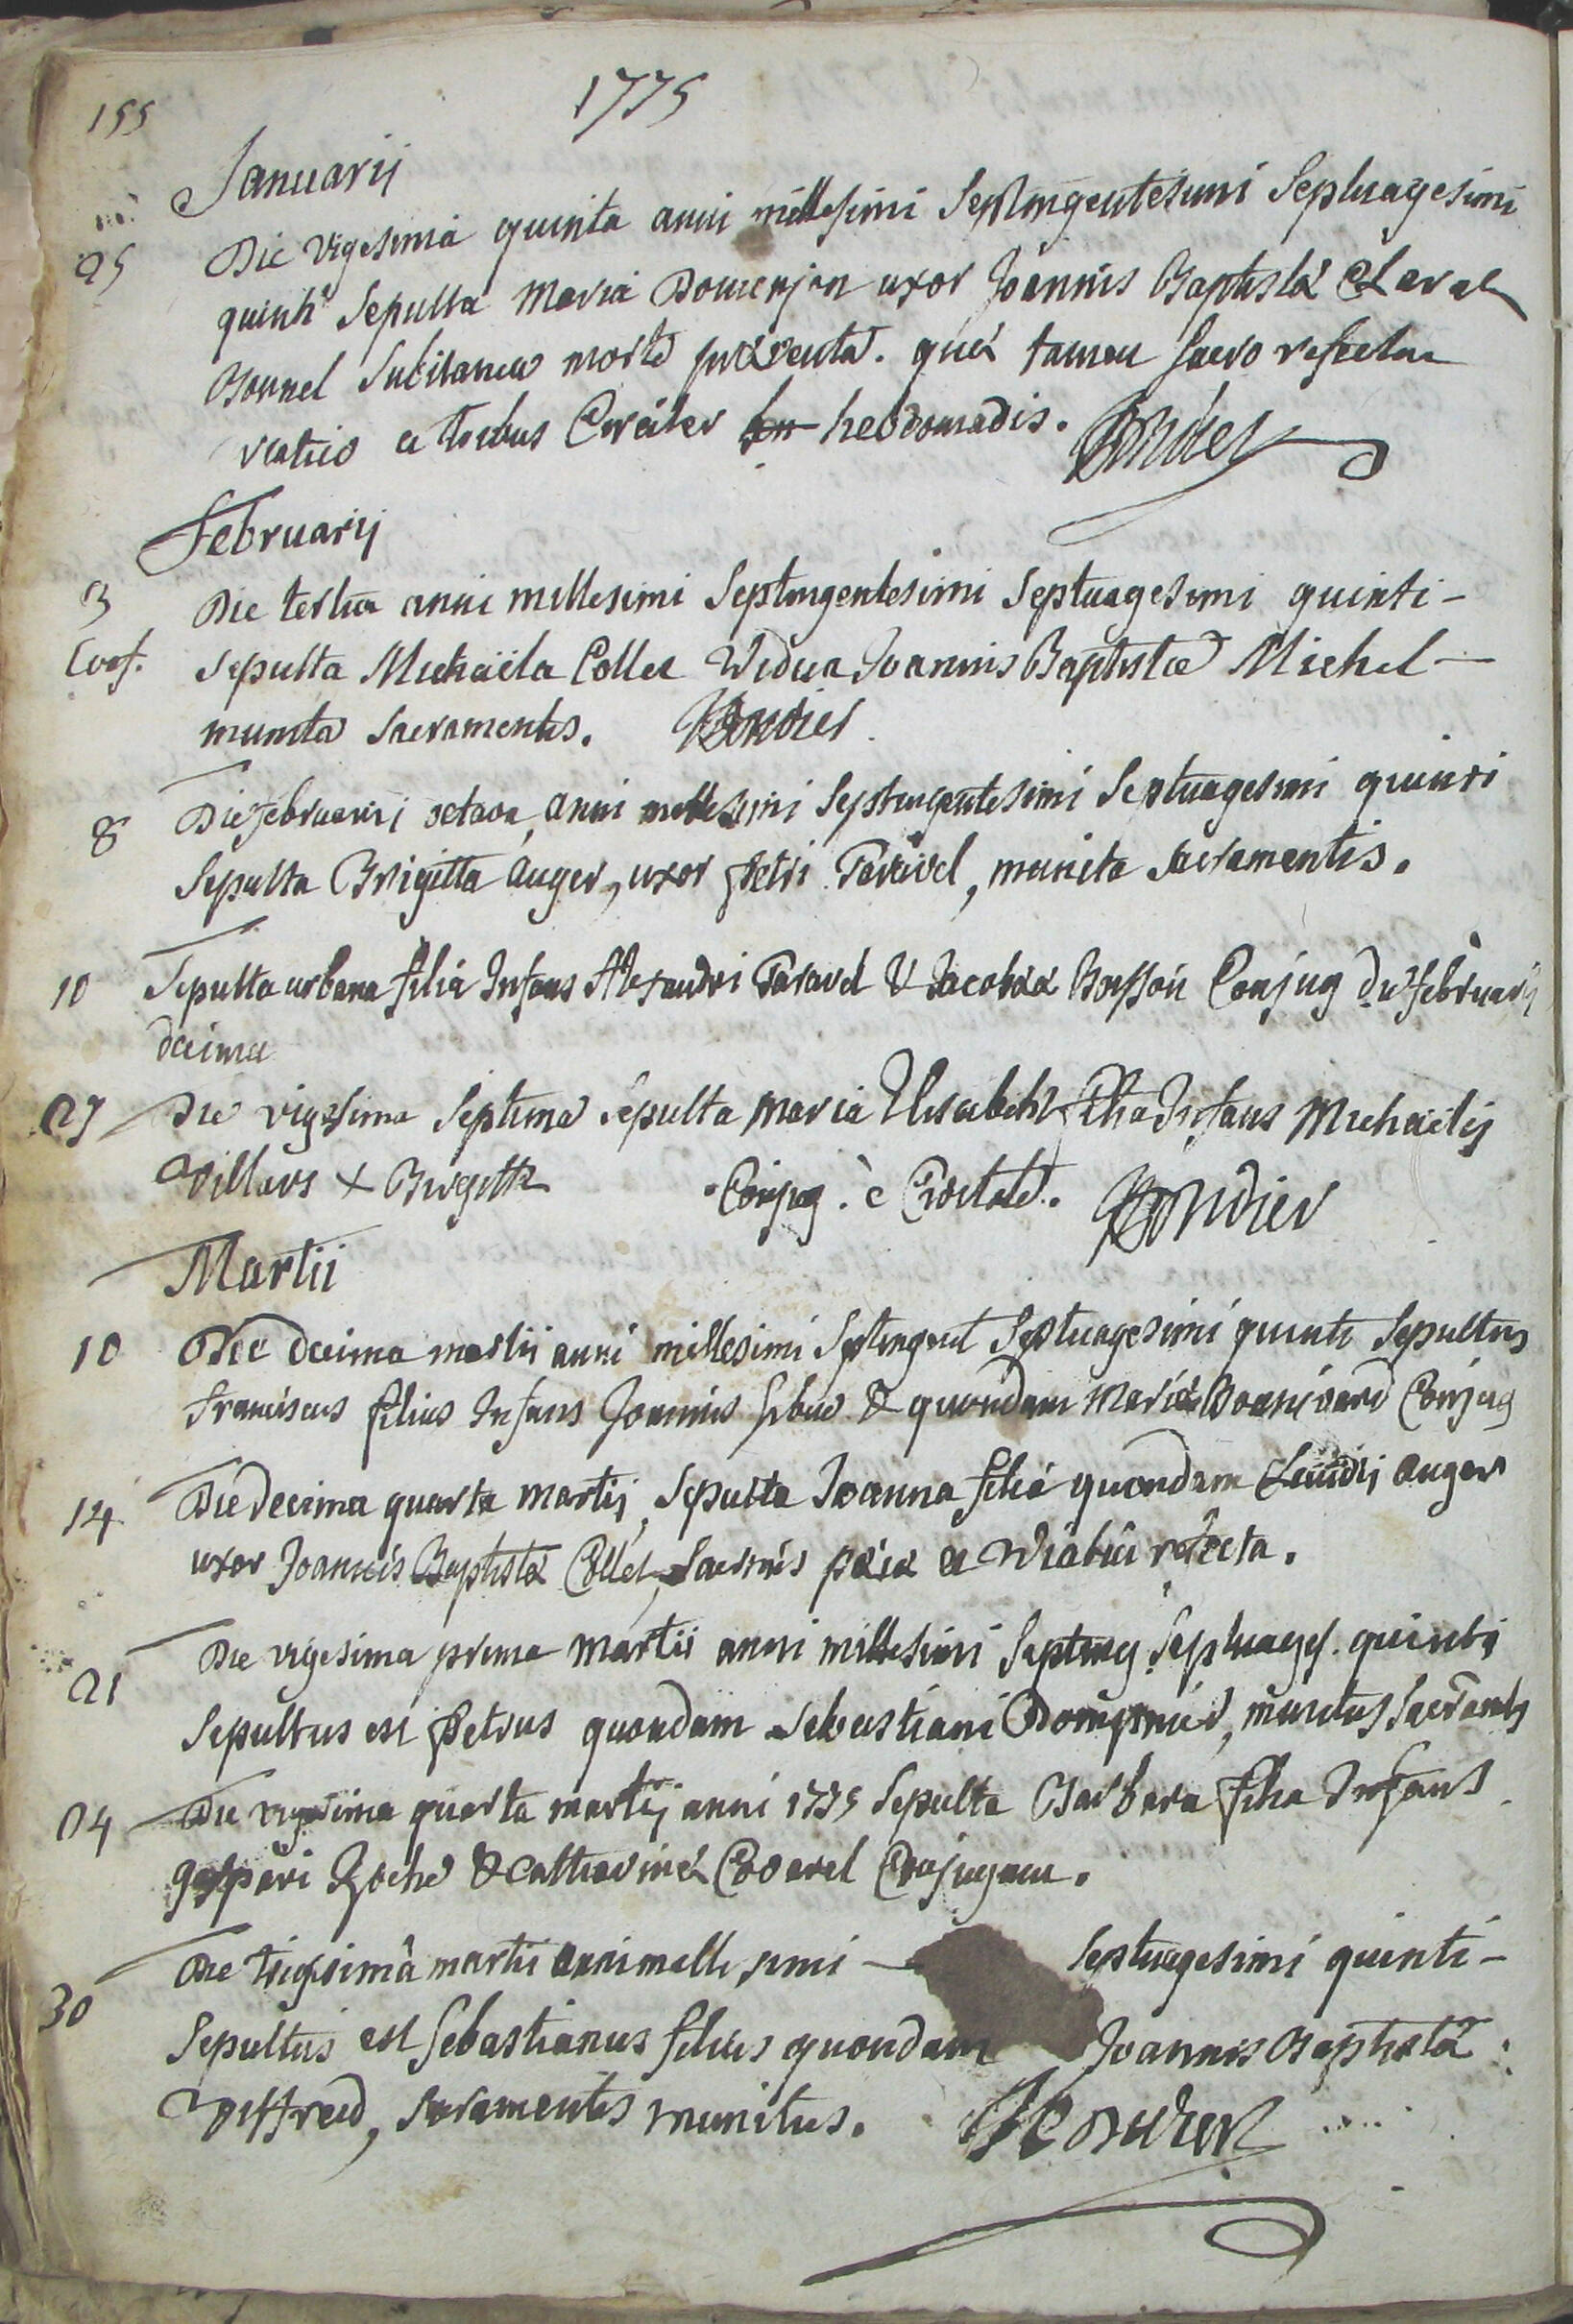 155
1775
Januarij
25 Die vigesima quinta anni millesimi Septingentesimi Septuagesimi
quinti Sepulta Maria Domenjon uxor Joannis Baptistæ Claraz
Bonnel Subitanea morte præventa. quæ tamen sacro refecta
viatico a tribus Circiter hebdomadis. Bordier
Februarij
3 Die tertia anni millesimi Septingentesimi Septuagesimi quinti -
Conf. Sepulta Michaela Collet Vidua Joannis Baptistæ Michel -
munita sacramentis. Bordier
8 Die februarii octava, anni millesimi Septingentesimi Septuagesimi quinti
Sepulta Brigitta Auger, uxor Petri Taravel, munita sacramentis.
10 Sepulta urbana filia Infans Alexandri Taravel & Jacobæa Bosson Conjug die februarij
decima
27 Die vigesima Septima Sepulta Maria Elisabeth filia Infans Michaelis
Villars & Brigittæ Conjug. è Civitate. Bordier
Martii
10 Die decima martii anni millesimi Septingent Septuagesimi quinti Sepultus
Franciscus filius Infans Joannis & quondam Mariæ Bonnivard Conjug
14 Die decima quarta martij, Sepulta Joanna filia quondam Auger
uxor Joannis Baptistæ Collet, Sacris piæ a viatici refecta.
21 Die vigesima prima Martii anni millesimi Septing. Septuages. quinti
Sepultus est Petrus quondam Sebastiani, munitus Sacramentis
24 Die vigesima quarta martij anni 1775 Sepulta Barbara filia Infans
gaspari Roche & Catharinæ Covarel Conjugum.
30 Die trigesimâ martii anni millesimi - Septuagesimi quinti -
Sepultus est Sebastianus filius quondam Joannis Baptistæ
Viffred, Sacramentis munitus. Bordier